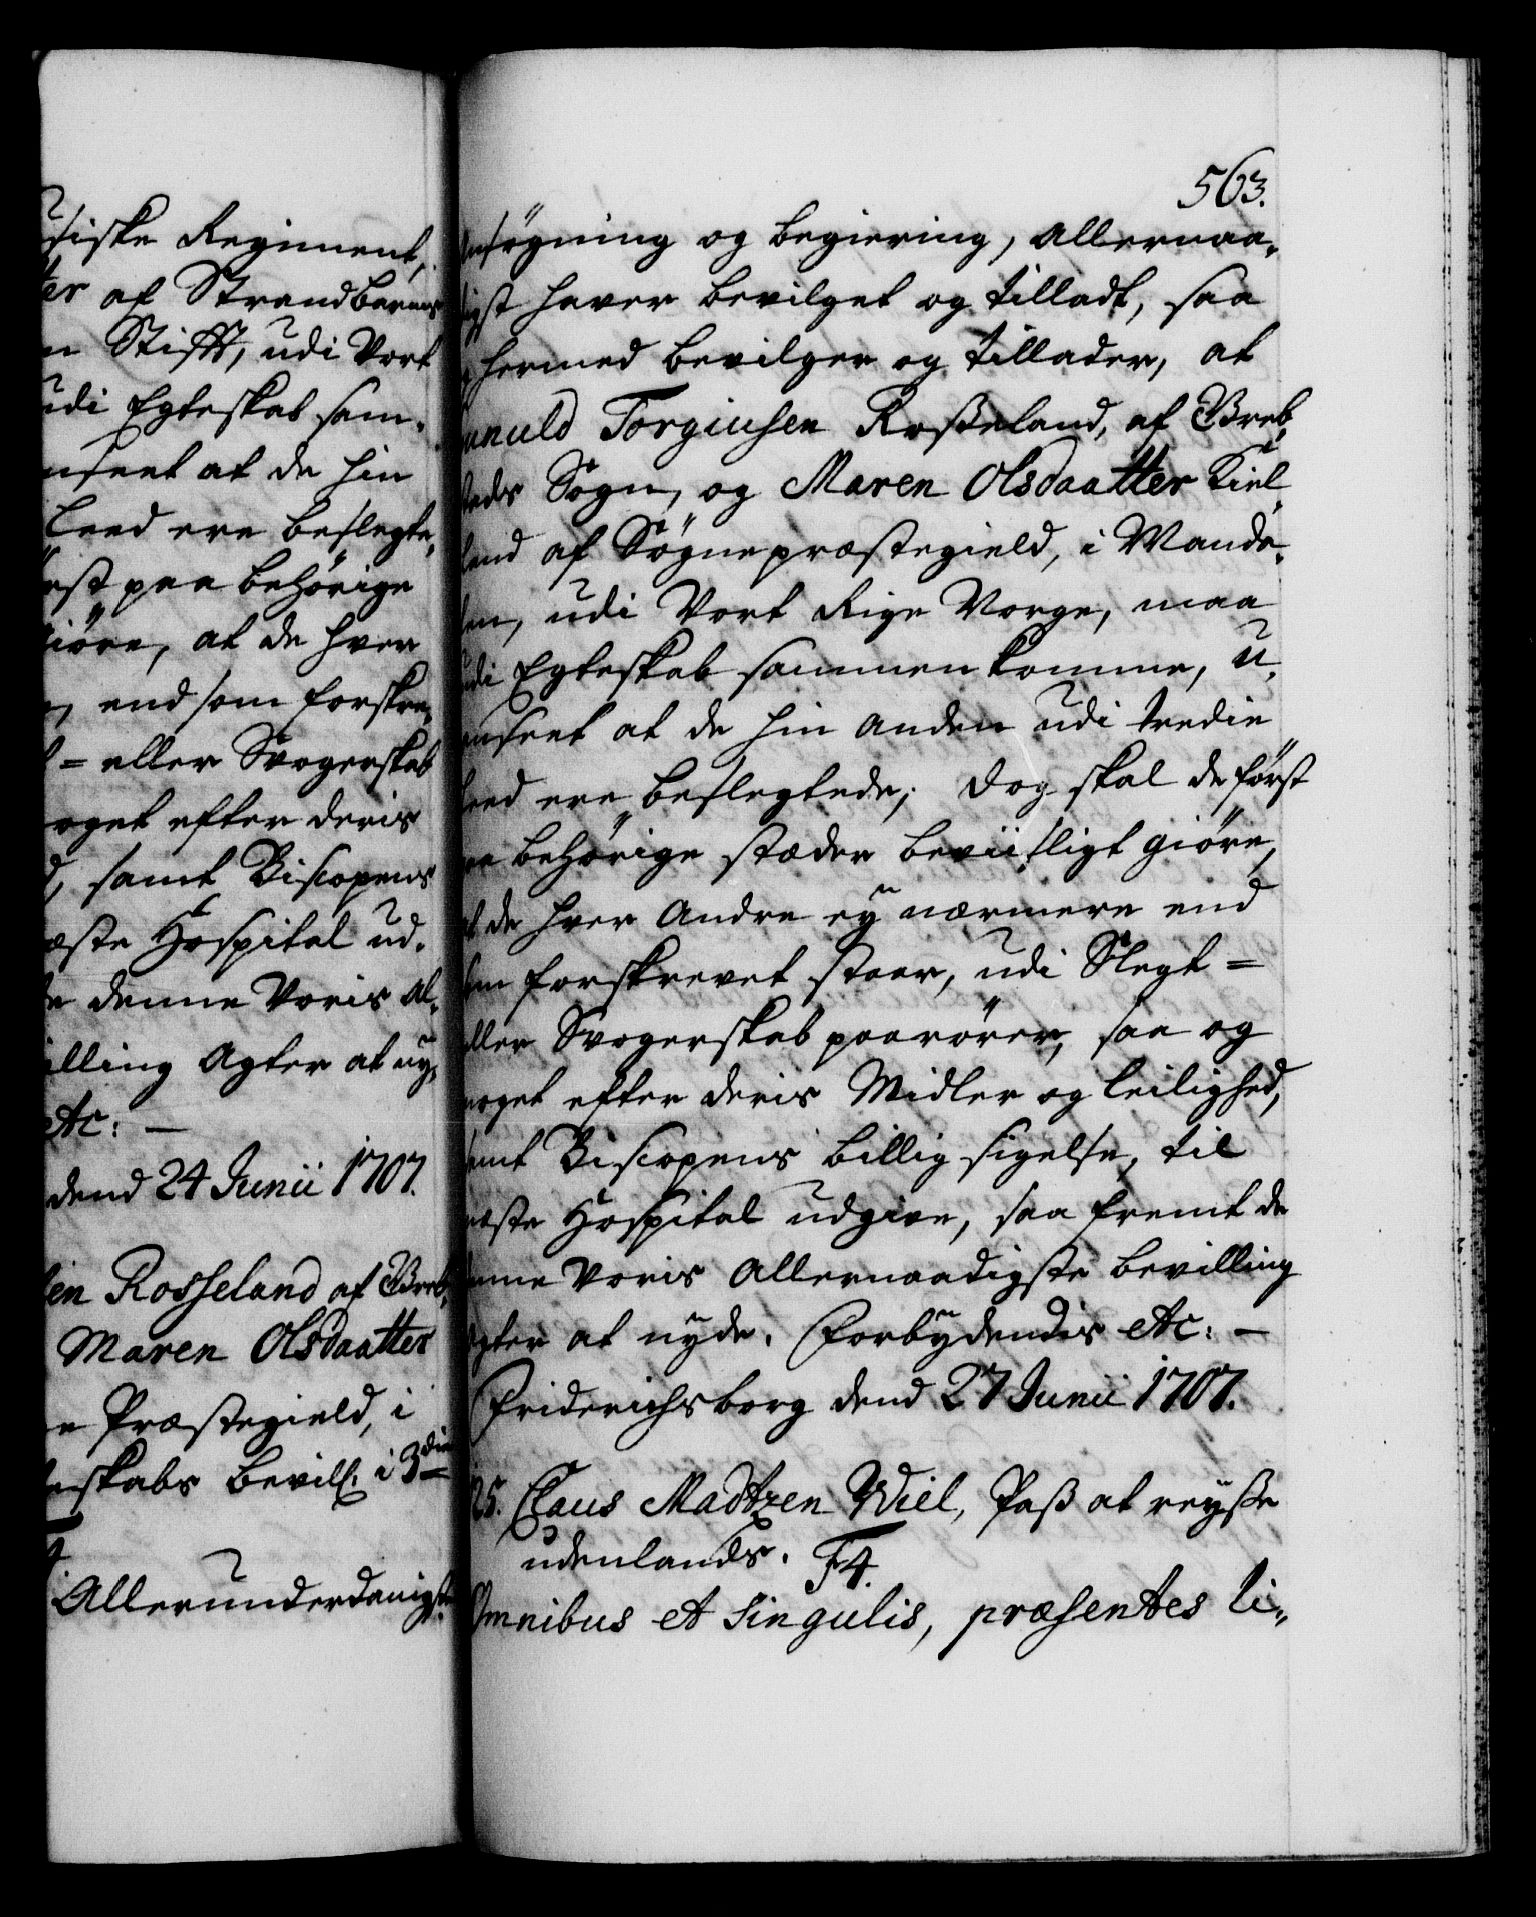 siske Regiment,
ter af Strandbarms
n Stifft, udi Vort
udi Egteskab sam-
anseet at de hin
Leed ere beslegte,
rst paa behörige
giöre, at de hver
end som forskre,
= eller Svogerskab
oget efter deris
samt Biscopens
næste Hospital ud-
denne Voris al,
villing Agter at ny,
etc: —
dend 24 Junii 1707.
sen Rosseland af Breb,
Maren Olsdaatter
ne Præstegield, i
teskabs bevill: i 3die
Allerunderdanigst
563.
Ansögning og begiering, Allernaa,
digst haver bevilget og tilladt, saa
og hermed bevilger og tillader, at
Gunuld Torgiusen Rosseland, af Breb,
steds Sogn, og Maren Olsdaatter Kiel,
land af Sögne præstegield, i Manda,
len, udi Vort Rige Norge, maa
udi Egteskab sammenkomme, u,
anseet at de hin anden udi tredie
Leed ere beslegtede; dog skal de först
paa behörige stæder beviisligt giöre,
at de hver Andre ey nærmere end
som forskrevet staar, udi Slegt =
eller Svogerskab paarörer, saa og
noget efter deris Midler og leilighed,
samt Biscopens billig sigelse, til
næste Hospital udgive, saa fremt de
denne Voris Allernaadigste bevilling
agter at nyde. Forbydendis etc: —
Friderichsborg dend 27 Junii 1707.
125. Claus Madtzen Wiel, Pass at reysse
udenlands. F4.
Omnibus et singulis, præsentes li,,